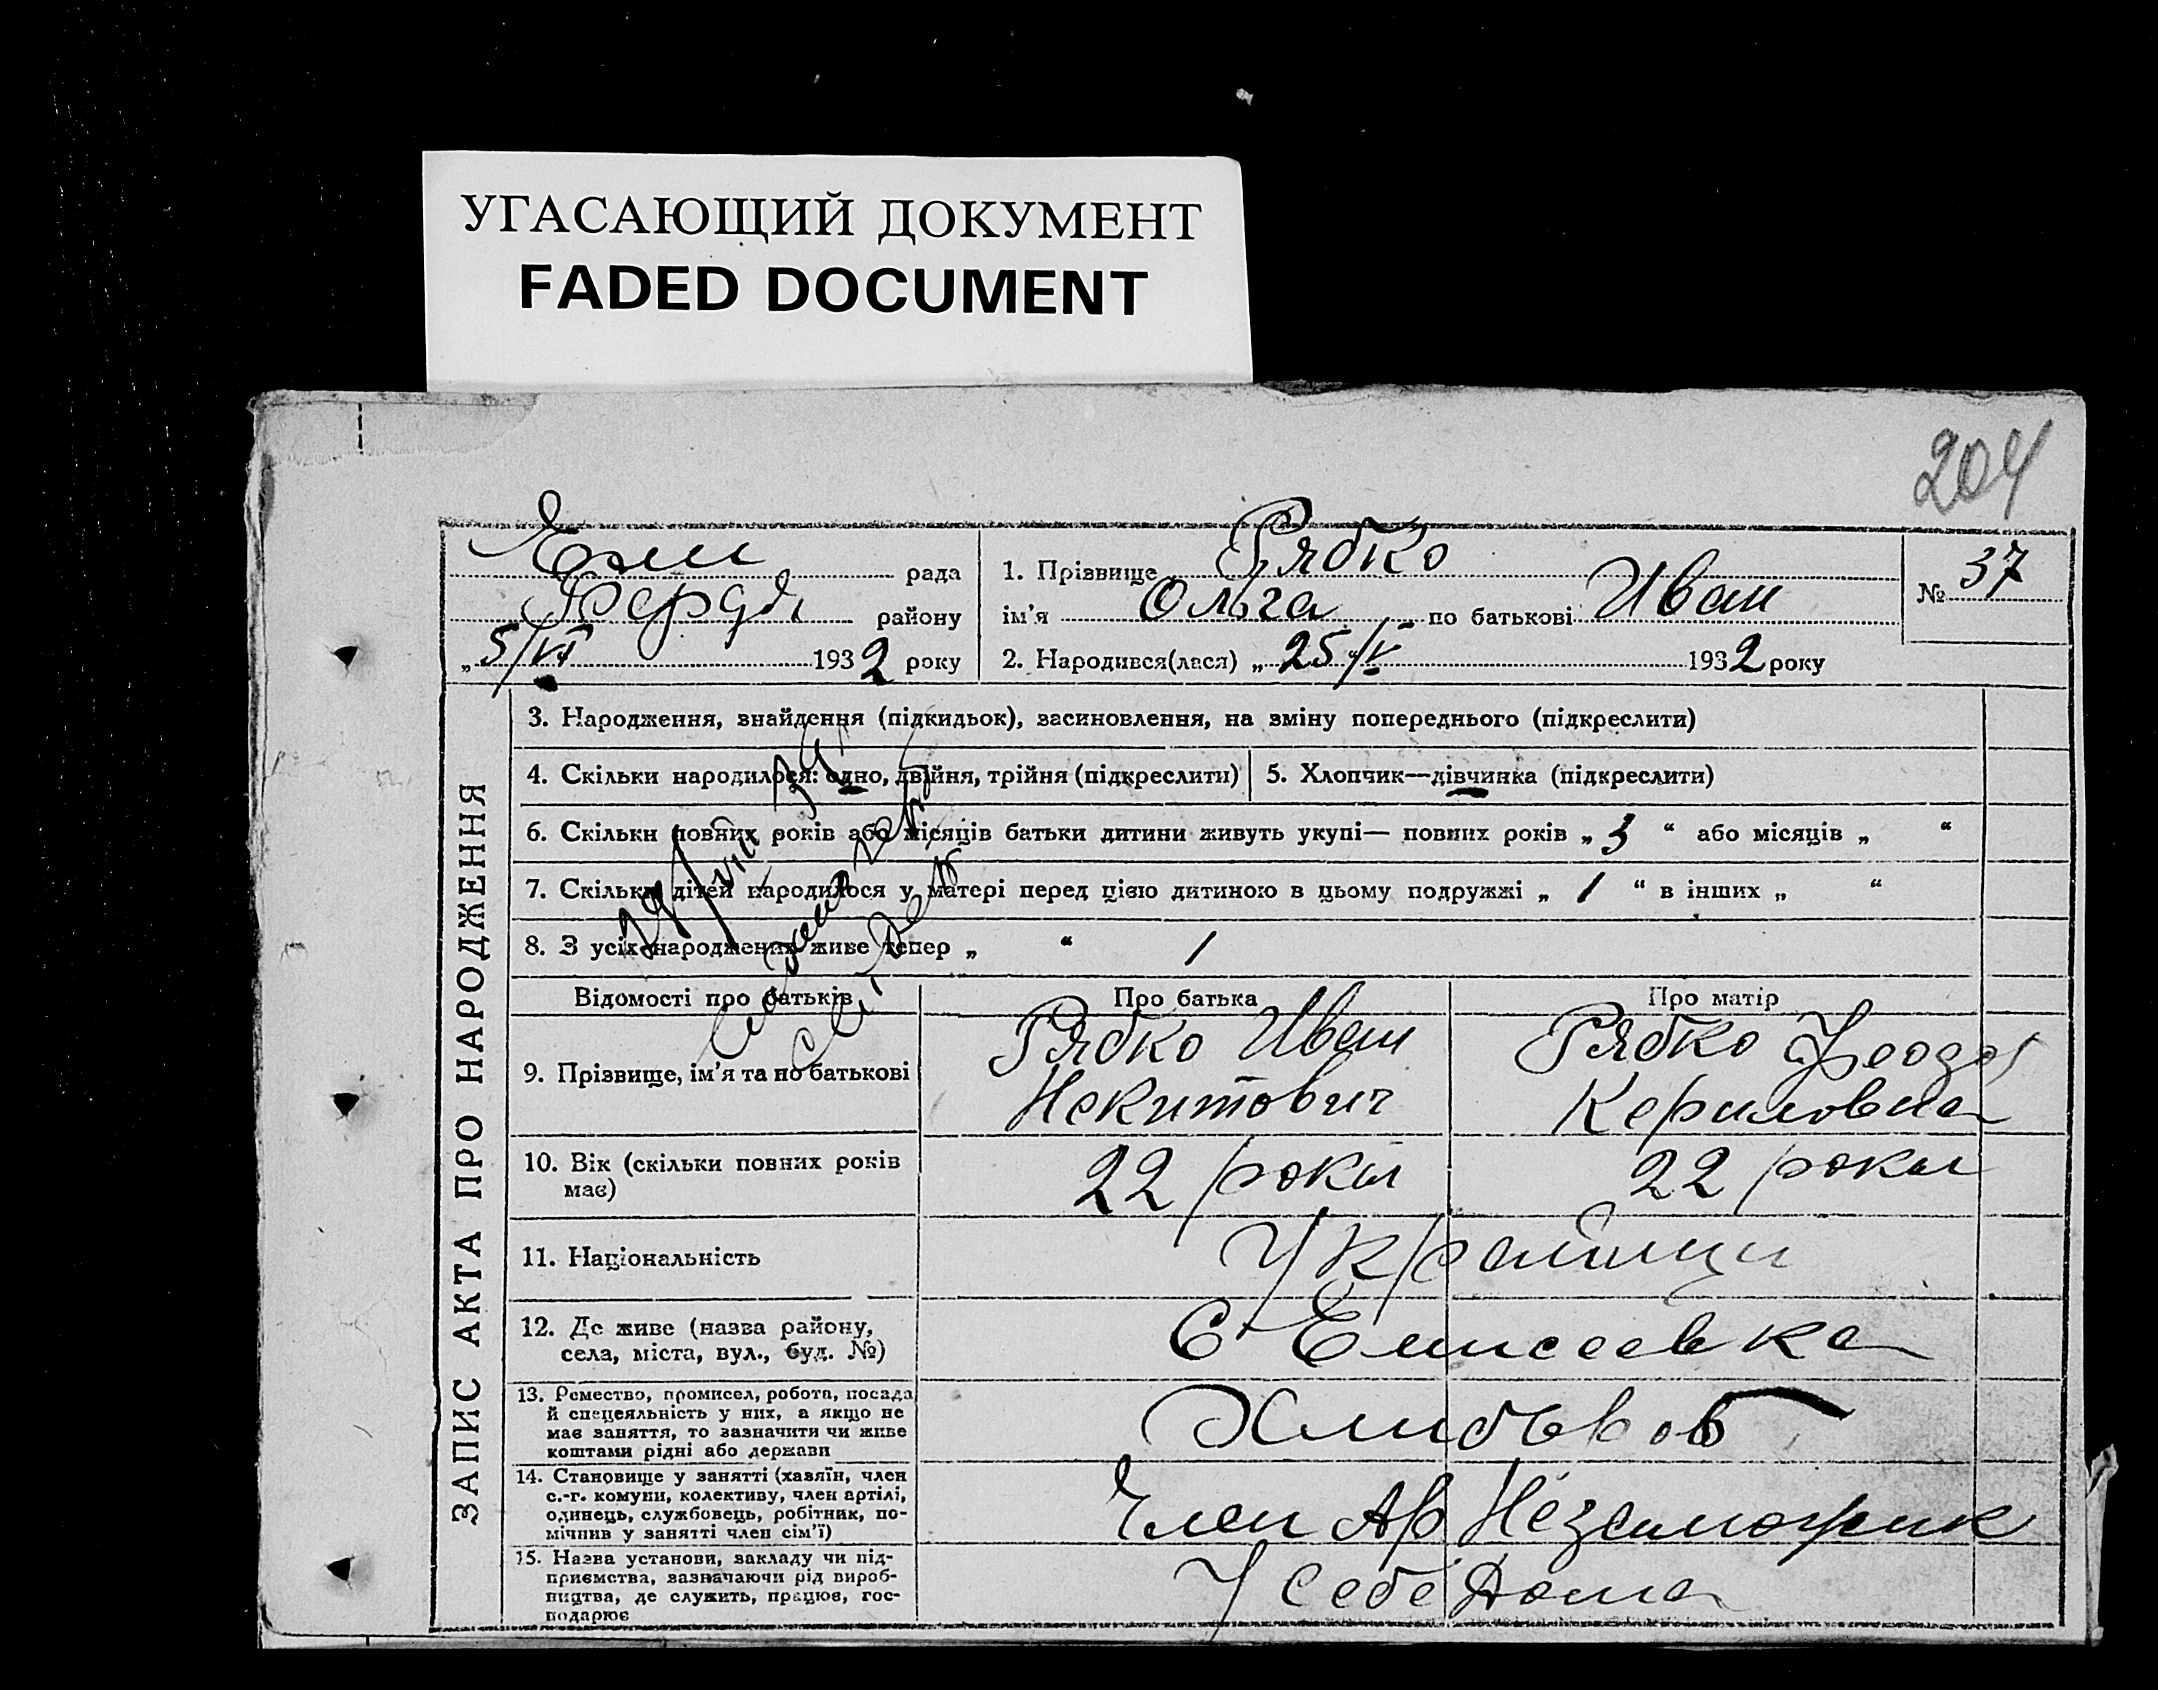 УГАСАЮЩИЙ ДОКУМЕНТ
FADED DOCUMENT
204
рада
району
„5/VI 1932 року
1. Прізвище Рябко
ім'я Ольга по батькові Иван
2. Народився(лася) „25/V 1932 року
№ 37
ЗАПИС АКТА ПРО НАРОДЖЕННЯ
3. Народження, знайдення (підкидьок), засиновлення, на зміну попереднього (підкреслити)
4. Скільки народилося: одно, двійня, трійня (підкреслити)
5. Хлопчик—дівчинка (підкреслити)
6. Скільки повних років або місяців батьки дитини живуть укупі— повних років „3“ або місяців „ “
7. Скільки дітей народилося у матері перед цією дитиною в цьому подружжі „1“ в інших „ “
8. З усіх народжених живе тепер „ “ 1
Відомості про батьків
Про батька
Про матір
9. Прізвище, ім'я та по батькові
Рябко Иван
Некитович
Рябко Феодос
Кериловна
10. Вік (скільки повних років
має)
22 роки
22 роки
11. Національність
Украинци
12. Де живе (назва району,
села, міста, вул., буд. №)
С Елисеевка
13. Ремество, промисел, робота, посада
й спецеяльність у них, а якщо не
має заняття, то зазначити чи живе
коштами рідні або держави
Хлибороб
14. Становище у занятті (хазяїн, член
с.-г. комуни, колективу, член артілі,
одинець, службовець, робітник, по-
мічнив у занятті член сім'ї)
Член Ар Незаможник
15. Назва установи, закладу чи під-
приємства, зазначаючи рід вироб-
ництва, де служить, працює, гос-
подарює
У себе дома